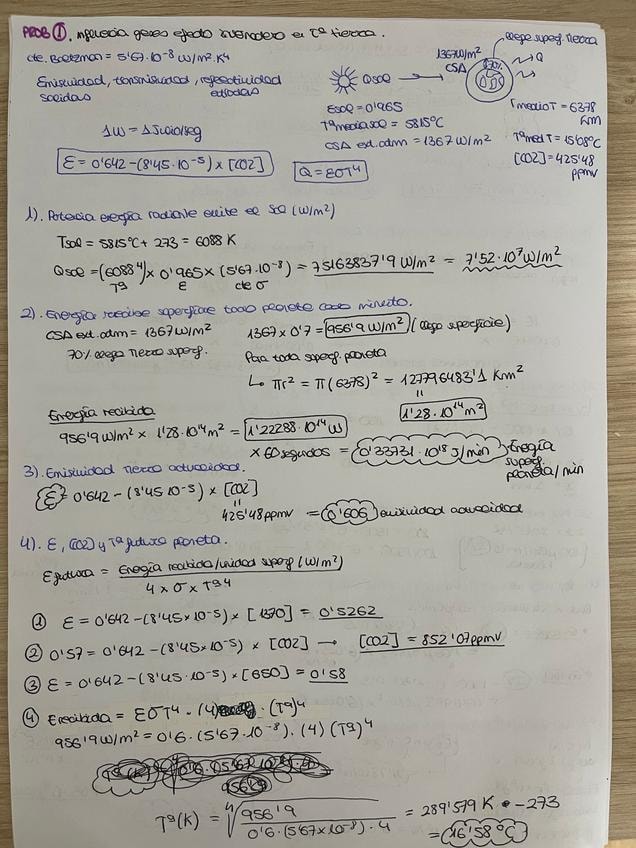 PROB ①. Influencia gases efecto invernadero en Tª tierra.
cte. Boltzman = 5'67·10⁻⁸ W/m²·K⁴
Emisividad, transmisividad, reflectividad
Qsol
1367W/m²
CSA
70%
llega superf. tierra
Q
Esol = 0'965
Tªmedia sol = 5815ºC
CSA ext. adm = 1367 W/m²
r medio T = 6378 km
Tªmed T = 15'08ºC
[CO2] = 425'48 ppmv
1W = 1Julio/seg
E = 0'642 - (8'45·10⁻⁵) x [CO2]
Q = EσT⁴
1). Potencia energía radiante emite el sol (W/m²)
Tsol = 5815ºC + 273 = 6088 K
Qsol = (6088⁴) x 0'965 x (5'67·10⁻⁸) = 75163837'9 W/m² = 7'52·10⁷ W/m²
Tª E cte σ
2). Energía recibe superficie todo planeta cada minuto.
CSA ext. adm = 1367 W/m²
1367 x 0'7 = 956'9 W/m² (llega superficie)
70% llega tierra superf.
Para toda superf. planeta
↳ πr² = π(6378)² = 127796483'1 Km²
=
1'28·10¹⁴ m²
Energía recibida
956'9 W/m² x 1'28·10¹⁴ m² = 1'22288·10¹⁴ W
x 60 segundos = 0'33731·10¹⁸ J/min
Energía superf. planeta/min
3) Emisividad tierra actualidad.
E = 0'642 - (8'45·10⁻⁵) x [CO2]
=
425'48 ppmv = 0'606 emisividad actualidad
4). E, [CO2] y Tª futura planeta.
E futura = Energía recibida/unidad superf (W/m²)
4 x σ x Tª⁴
① E = 0'642 - (8'45x10⁻⁵) x [1370] = 0'5262
② 0'57 = 0'642 - (8'45x10⁻⁵) x [CO2] → [CO2] = 852'07ppmv
③ E = 0'642 - (8'45·10⁻⁵) x [650] = 0'58
④ Erecibida = EσT⁴ · (4) · (Tª)⁴
956'9 W/m² = 0'6 · (5'67·10⁻⁸) · (4) (Tª)⁴
Tª(K) = ⁴√ 956'9 = 289'579 K - 273
0'6·(5'67x10⁻⁸)·4
= 16'58 ºC